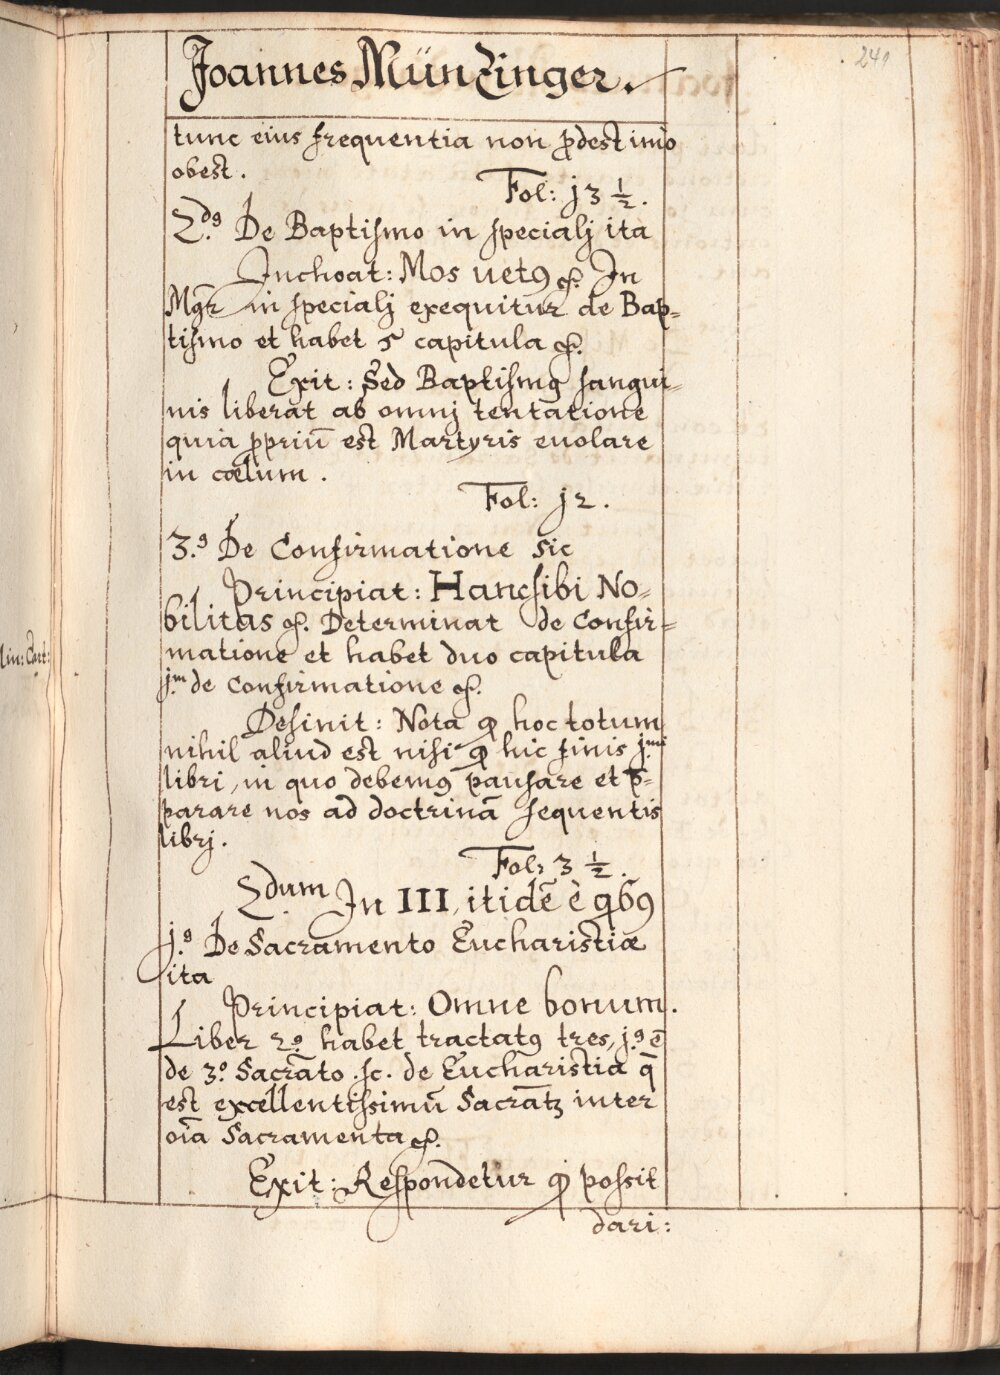 241
Joannes Münzinger.
tunc eius frequentia non p̄dest imò
obest.
Fol: j3 ½.
2.dꝰ De Baptismo in specialj ita
Inchoat: Mos uetꝰ &. In
Mgr̄ in specialj exequitur de Bap=
tismo et habet 5 capitula &.
Exit: Sed Baptismꝰ sangui=
nis liberat ab omnj tentatione
quia ꝓpriū est Martyris euolare
in cœlum.
Fol: j2.
3.ꝰ De Confirmatione sic
Principiat: Hanc sibi No=
bilitas &. Determinat de Confir=
matione et habet duo capitula
j.m de Confirmatione &.
Desinit: Nota ꝙ hoc totum
nihil aliud est nisi ꝙ hic finis j.mi
libri, in quo debemꝰ pausare et p̄=
parare nos ad doctrinā sequentis
librj.
Fol: 3 ½.
2dum In III, itidē è ꝗbꝰ
j.ꝰ De Sacramento Eucharistiæ
ita
Principiat: Omne bonum.
Liber 2.ꝰ habet tractatꝰ tres, j.ꝰ ē
de 3.º Sacrāto .sc. de Eucharistia q̄
est excellentissimū Sacrātꝫ inter
oīa Sacramenta &.
Exit: Respondetur ꝙ possit
dari: